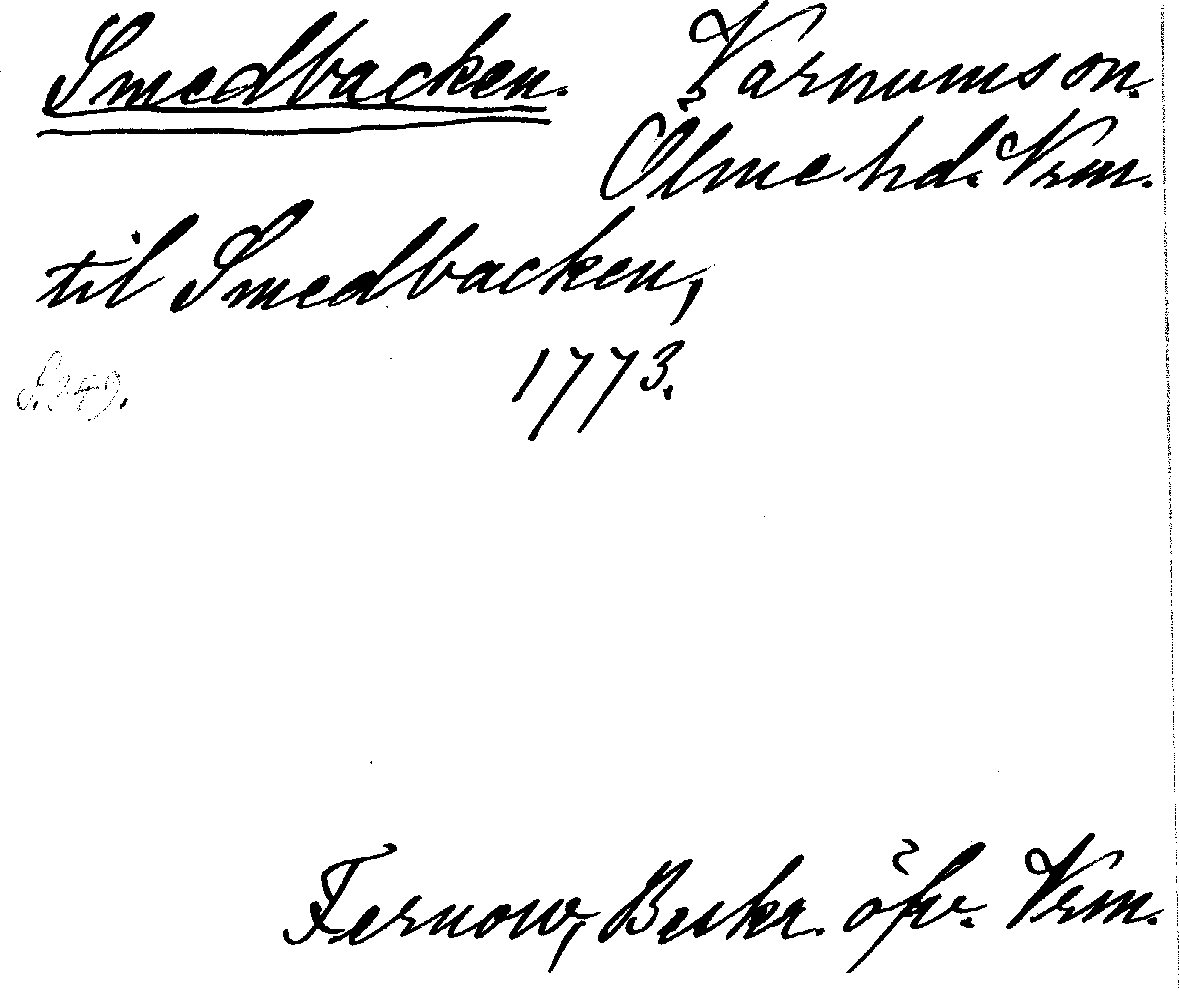 Smedbacken. Varnums sn.
Ölme hd. Vrm.
til Smedbacken,
S. 249. 1773.
Fernow, Beskr. öfv. Vrm.